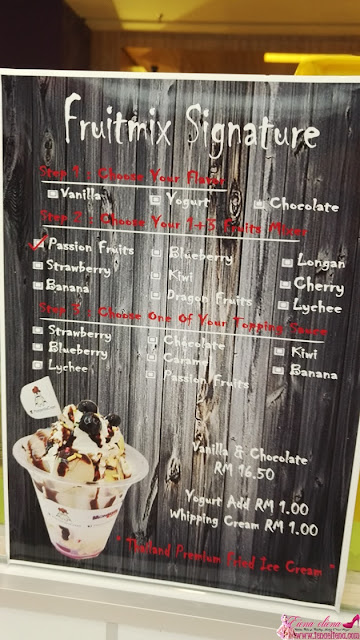 Fruitmix Signature
Step 1 : Choose Your Flavor
Vanilla Yogurt Chocolate
Step 2 : Choose Your 1+3 Fruits Mixni
Passion Fruits Blueberry Longan
Strawberry Kiwi Cherry
Banana Dragon Fruits Lychee
Step 3 : Choose One Of Your Topping Sauce
Strawberry Chocolate Kiwi
Blueberry Caramel Banana
Lychee Passion Fruits
Vanilla & Chocolate
RM 16.50
Yogurt Add RM 1.00
Whipping Cream RM 1.00
" Thailand Premium Fried Ice Cream "